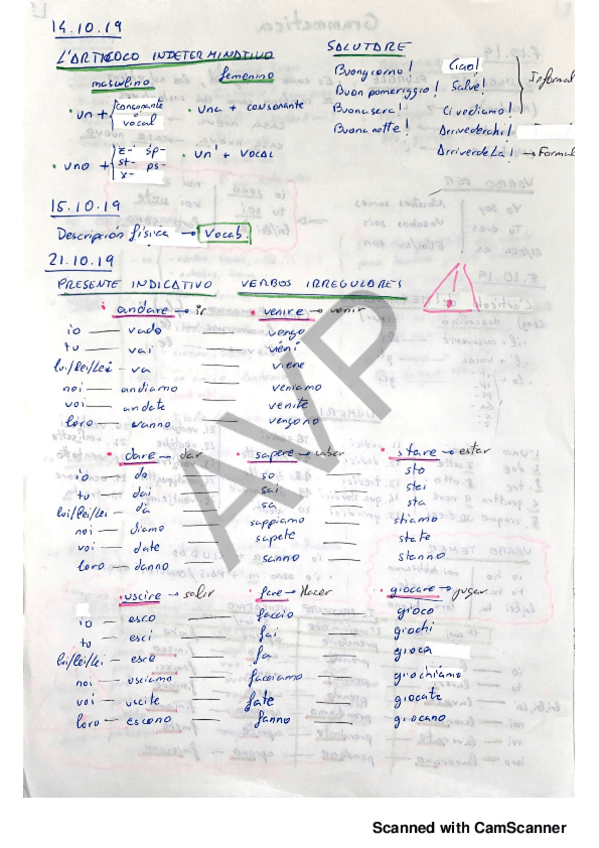 14.10.19
L'ARTICOLO INDETERMINATIVO
masculino femenino
• un + { consonante o vocal
• una + consonante
• uno + { z- sp- st- ps- x-
• un' + VOCAL
SALUTARE
Buongiorno! Ciao!
Buon pomeriggio! Salve!
Informal
Buonasera! Ci vediamo!
Buonanotte! Arrivederchi!
ArrivederLa! → Formal
15.10.19
Descripción física → Vocab.
21.10.19
PRESENTE INDICATIVO VERBOS IRREGULARES
• andare → ir • venire → venir
io — vado — vengo
tu — vai — vieni
lui/lei/Lei — va — viene
noi — andiamo — veniamo
voi — andate — venite
loro — vanno — vengono
• dare → dar • sapere → saber • stare → estar
io — do — so — sto
tu — dai — sai — stai
lui/lei/Lei — dà — sa — sta
noi — diamo — sappiamo — stiamo
voi — date — sapete — state
loro — danno — sanno — stanno
• uscire → salir • fare → Hacer • giocare → jugar
io — esco — faccio — gioco
tu — esci — fai — giochi
lui/lei/Lei — esce — fa — gioca
noi — usciamo — facciamo — giochiamo
voi — uscite — fate — giocate
loro — escono — fanno — giocano
AVP
Scanned with CamScanner